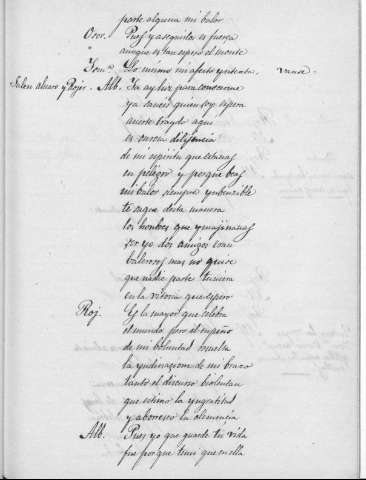 parte alguna mi balor
Osor. Pues y aseguirlos es fuerza
aunque es tan espeso el monte
Tom.º Lo mismo mi afecto yntenta. vanse.
Salen alvaro y Rojas. Alb. Ya ay luz para conocerme
ya saueis quien soy
averte traydo aqui
es curiosa diligencia
de mi espiritu que
en peligro y porque beas
mi balor siempre ynbencible
te saque desta manera
los hombres que ymajinauas
ser yo dos amigos eran
balerosos mas no quise
que nadie parte tuviera
en la vitoria que espero
Roj. Es la mayor que celebra
el mundo pero el empeño
de mi boluntad resuelta
la yndinazion de mi brazo
tanto el discurso biolentan
que estimo la yngratitud
y aborresco la clemencia
Alb. Pues yo que guarde tu vida
fue porque temi que en ella